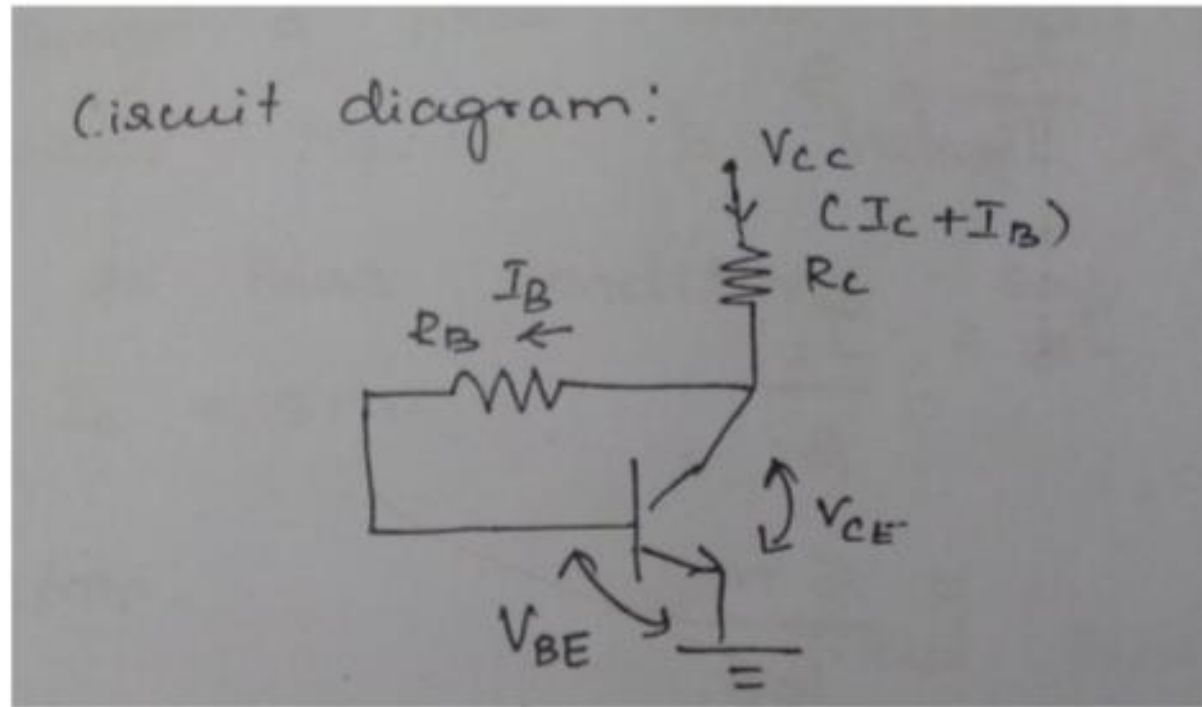 Circuit diagram:
VCC
(IC + IB)
RC
IB
RB
VCE
VBE